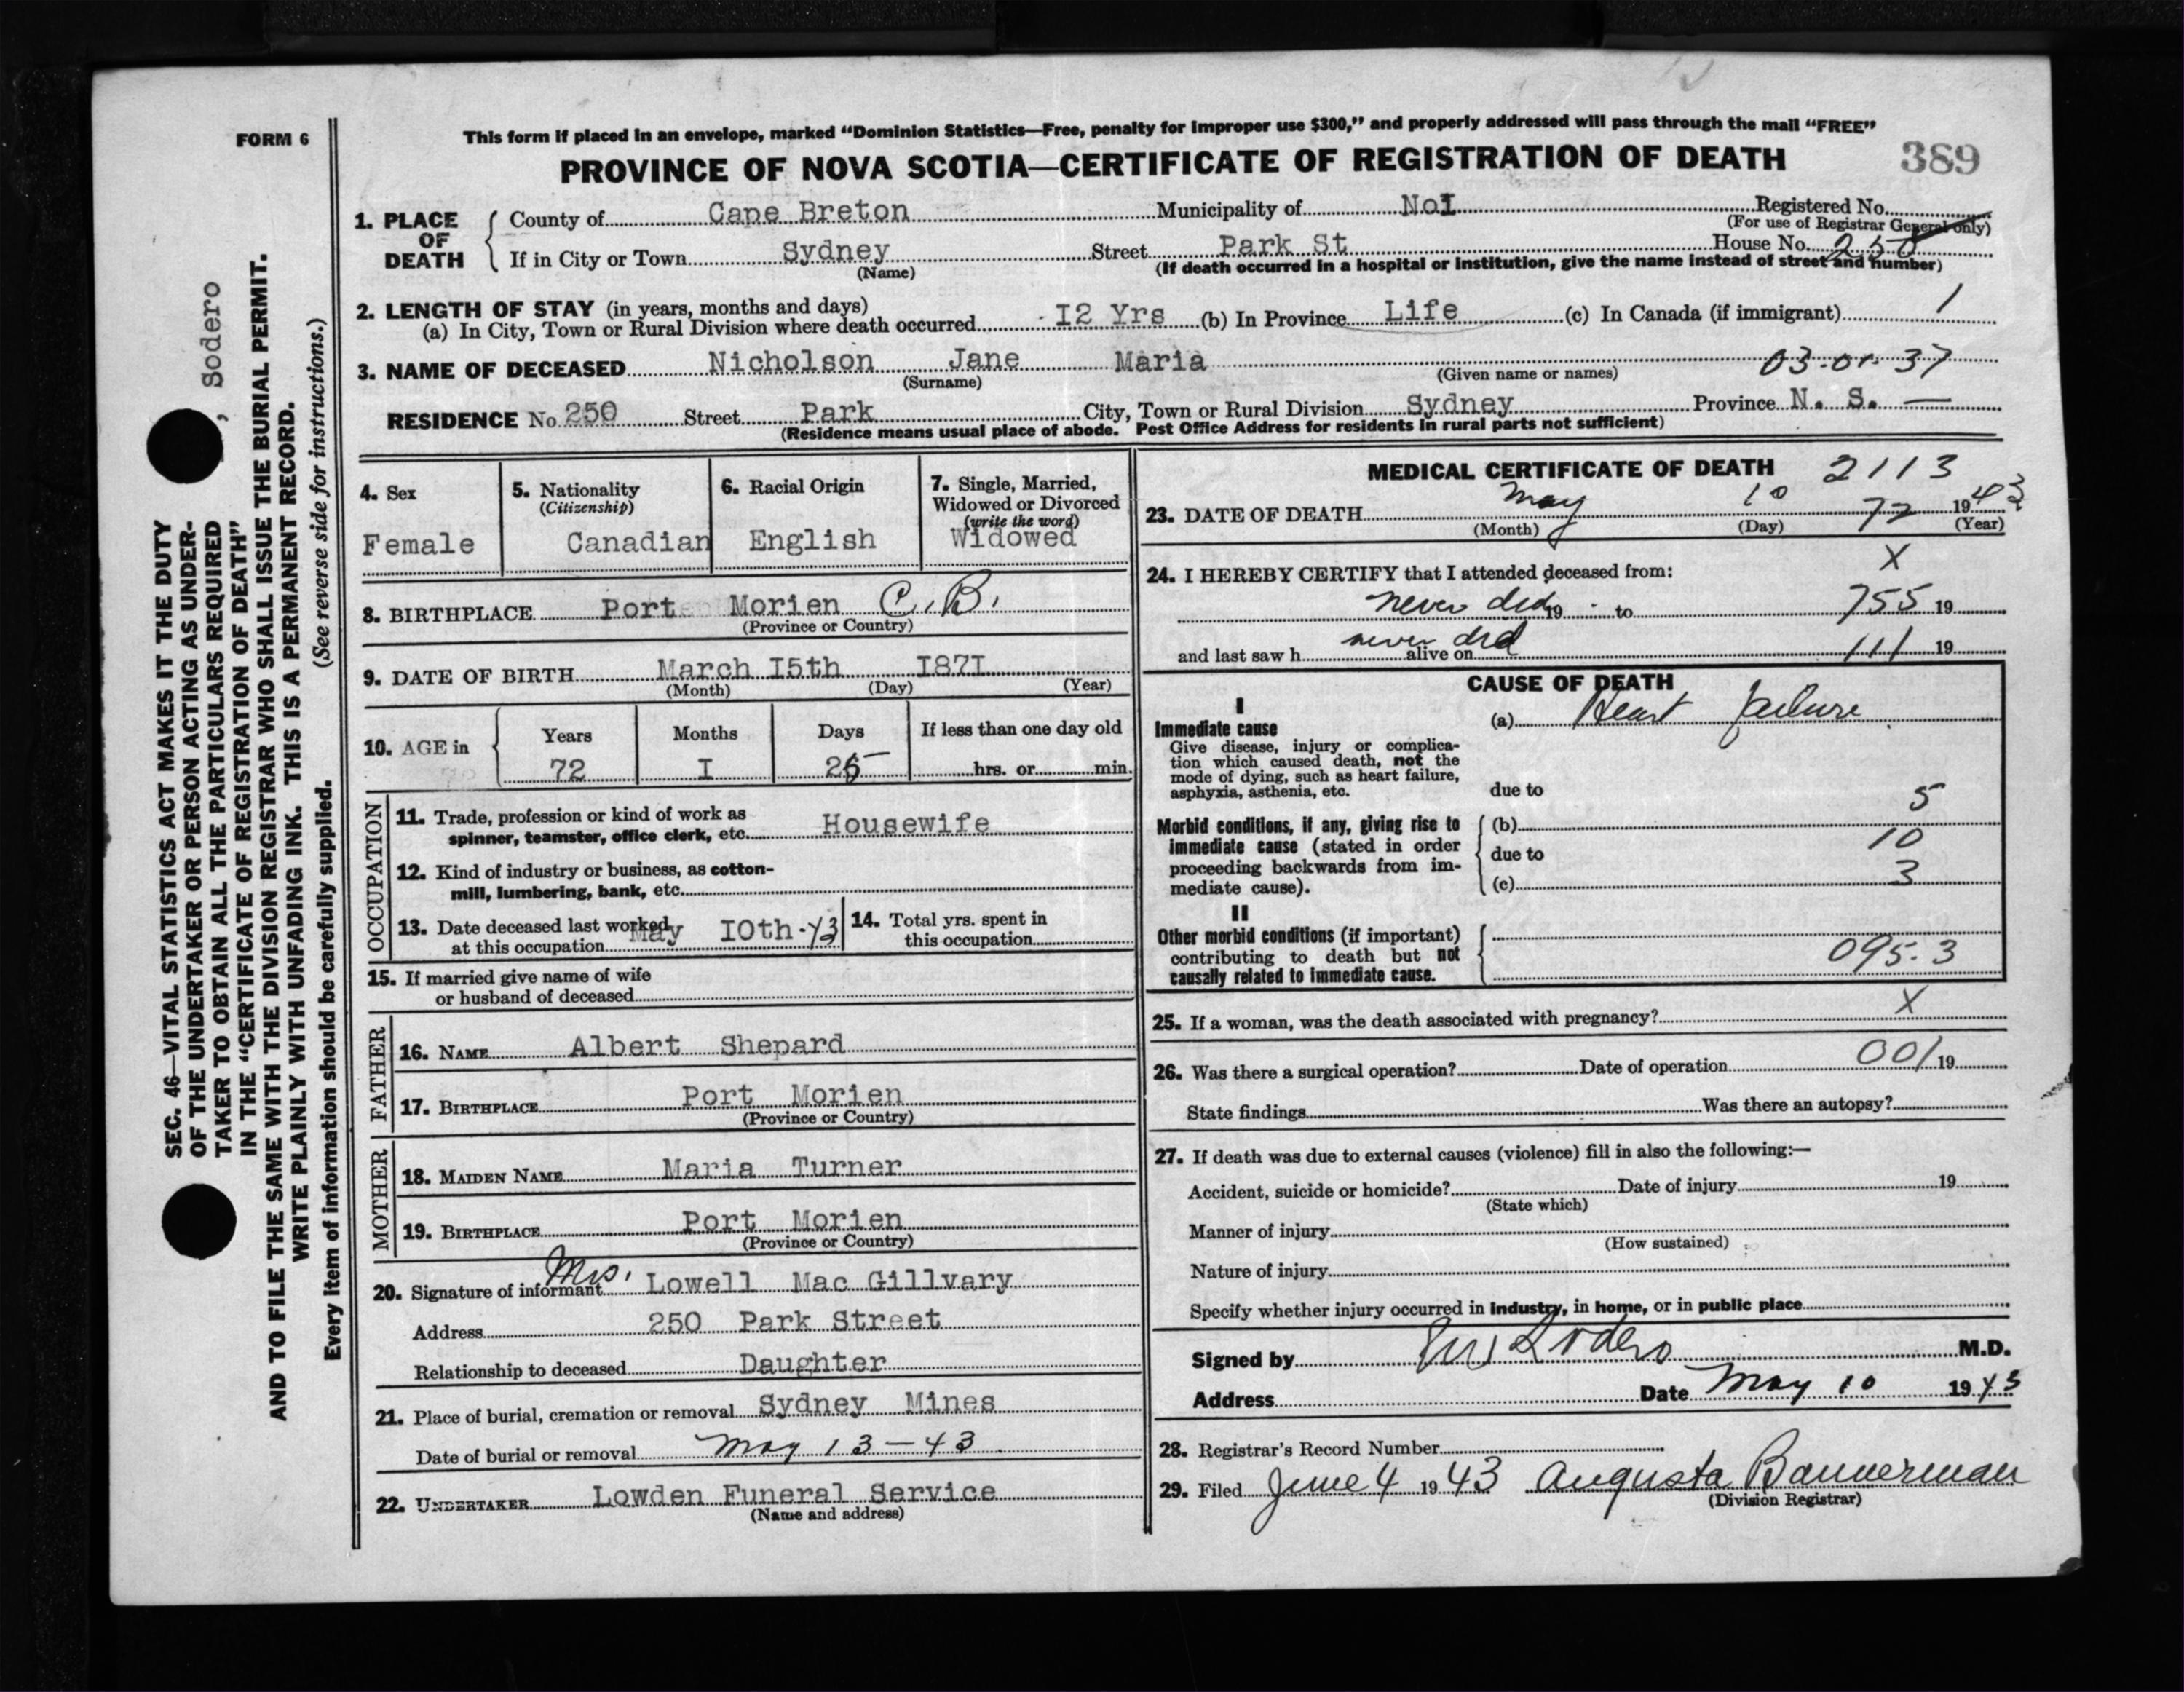 FORM 6
This form if placed in an envelope, marked “Dominion Statistics—Free, penalty for improper use $300,” and properly addressed will pass through the mail “FREE”
PROVINCE OF NOVA SCOTIA—CERTIFICATE OF REGISTRATION OF DEATH
389
1. PLACE OF DEATH
County of Cape Breton Municipality of No I Registered No.
(For use of Registrar General only)
If in City or Town Sydney Street Park St House No. 250
(Name) (If death occurred in a hospital or institution, give the name instead of street and number)
2. LENGTH OF STAY (in years, months and days)
(a) In City, Town or Rural Division where death occurred I2 Yrs (b) In Province Life (c) In Canada (if immigrant) 1
3. NAME OF DECEASED Nicholson Jane Maria 03-01-37
(Surname) (Given name or names)
RESIDENCE No. 250 Street Park City, Town or Rural Division Sydney Province N. S. —
(Residence means usual place of abode. Post Office Address for residents in rural parts not sufficient)
4. Sex
Female
5. Nationality
(Citizenship)
Canadian
6. Racial Origin
English
7. Single, Married,
Widowed or Divorced
(write the word)
Widowed
8. BIRTHPLACE Port Morien C.B.
(Province or Country)
9. DATE OF BIRTH March I5th I87I
(Month) (Day) (Year)
10. AGE in
Years Months Days If less than one day old
72 I 25 hrs. or min.
OCCUPATION
11. Trade, profession or kind of work as
spinner, teamster, office clerk, etc. Housewife
12. Kind of industry or business, as cotton-
mill, lumbering, bank, etc.
13. Date deceased last worked
at this occupation May IOth-43
14. Total yrs. spent in
this occupation
15. If married give name of wife
or husband of deceased
FATHER
16. NAME Albert Shepard
17. BIRTHPLACE Port Morien
(Province or Country)
MOTHER
18. MAIDEN NAME Maria Turner
19. BIRTHPLACE Port Morien
(Province or Country)
20. Signature of informant Mrs. Lowell Mac Gillvary
Address 250 Park Street
Relationship to deceased Daughter
21. Place of burial, cremation or removal Sydney Mines
Date of burial or removal May 13-43
22. UNDERTAKER Lowden Funeral Service
(Name and address)
MEDICAL CERTIFICATE OF DEATH 2113
23. DATE OF DEATH May 10 72 1943
(Month) (Day) (Year)
24. I HEREBY CERTIFY that I attended deceased from: X
never did 19 to 755 19
and last saw h never did alive on 111 19
CAUSE OF DEATH
I
Immediate cause
Give disease, injury or complica-
tion which caused death, not the
mode of dying, such as heart failure,
asphyxia, asthenia, etc.
(a) Heart failure
due to
5
Morbid conditions, if any, giving rise to
immediate cause (stated in order
proceeding backwards from im-
mediate cause).
(b)
10
due to
(c) 3
II
Other morbid conditions (if important)
contributing to death but not
causally related to immediate cause.
095.3
25. If a woman, was the death associated with pregnancy? X
26. Was there a surgical operation? Date of operation 001 19
State findings Was there an autopsy?
27. If death was due to external causes (violence) fill in also the following:—
Accident, suicide or homicide? Date of injury 19
(State which)
Manner of injury
(How sustained)
Nature of injury
Specify whether injury occurred in industry, in home, or in public place
Signed by Sodero M.D.
Address Date May 10 1943
28. Registrar's Record Number
29. Filed June 4 1943 Augusta Bannerman
(Division Registrar)
, Sodero
SEC. 46—VITAL STATISTICS ACT MAKES IT THE DUTY
OF THE UNDERTAKER OR PERSON ACTING AS UNDER-
TAKER TO OBTAIN ALL THE PARTICULARS REQUIRED
IN THE “CERTIFICATE OF REGISTRATION OF DEATH”
AND TO FILE THE SAME WITH THE DIVISION REGISTRAR WHO SHALL ISSUE THE BURIAL PERMIT.
WRITE PLAINLY WITH UNFADING INK. THIS IS A PERMANENT RECORD.
Every item of information should be carefully supplied. (See reverse side for instructions.)